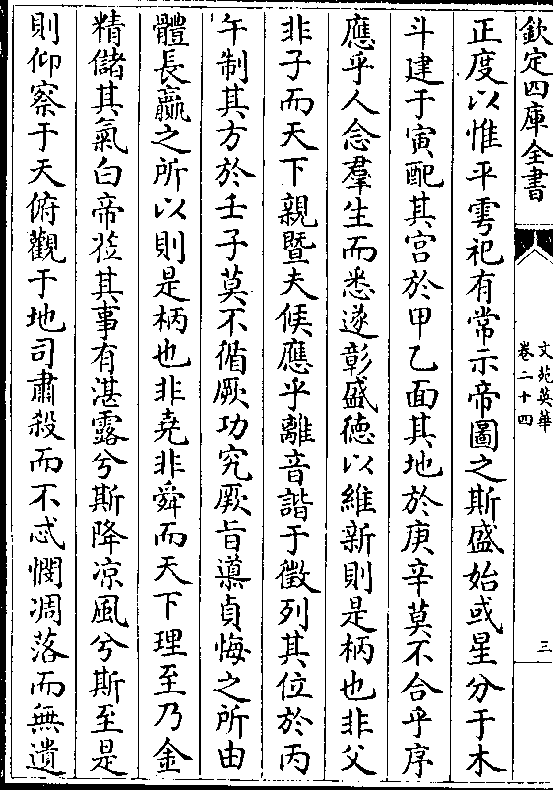 欽定四庫全書
文苑英華
卷二十四
三
正度以惟平雩祀有常示帝圖之斯盛始或星分于木
斗建于寅配其宫於甲乙面其地於庚辛莫不合乎序
應乎人念羣生而悉遂彰盛德以維新則是柄也非父
非子而天下親暨夫候應乎離音諧于徵列其位於丙
午制其方於壬子莫不循厥功究厥旨導貞悔之所由
體長贏之所以則是柄也非堯非舜而天下理至乃金
精儲其氣白帝莅其事有湛露兮斯降凉風兮斯至是
則仰察于天俯觀于地司肅殺而不忒憫凋落而無遺